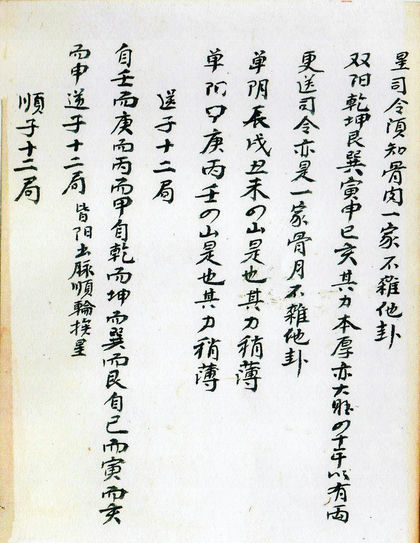 星司令須知骨肉一家不雜他卦
双阳乾坤艮巽寅申巳亥其力本厚亦大胜の十千以有兩
更送司令亦是一家骨月不雜他卦
单阴辰戌丑未の山是也其力稍薄
单阳甲庚丙壬の山是也其力稍薄
送子十二局
自壬而庚而丙而甲自乾而坤而巽而艮自巳而寅而亥
而申送子十二局 皆阳出脉順輪挨星
順子十二局